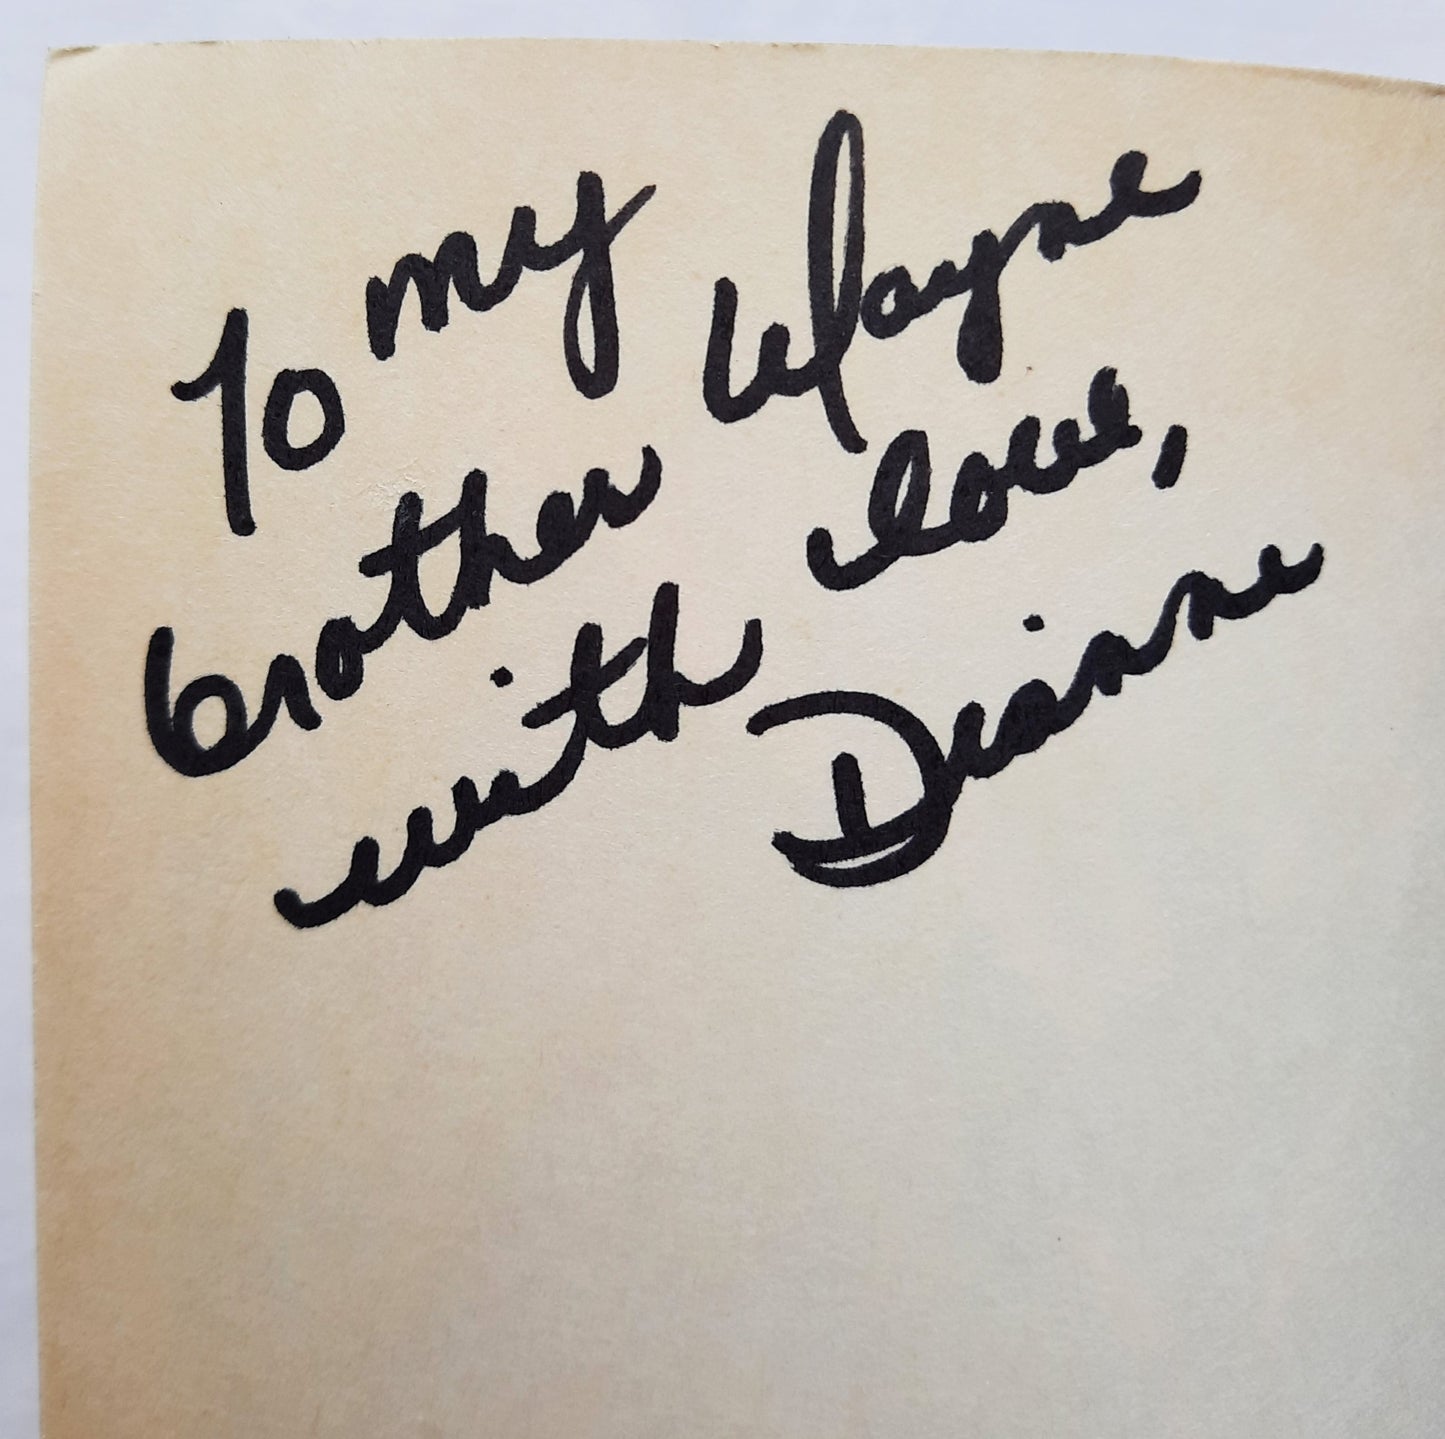 To my
brother Wayne
with love,
Dianne